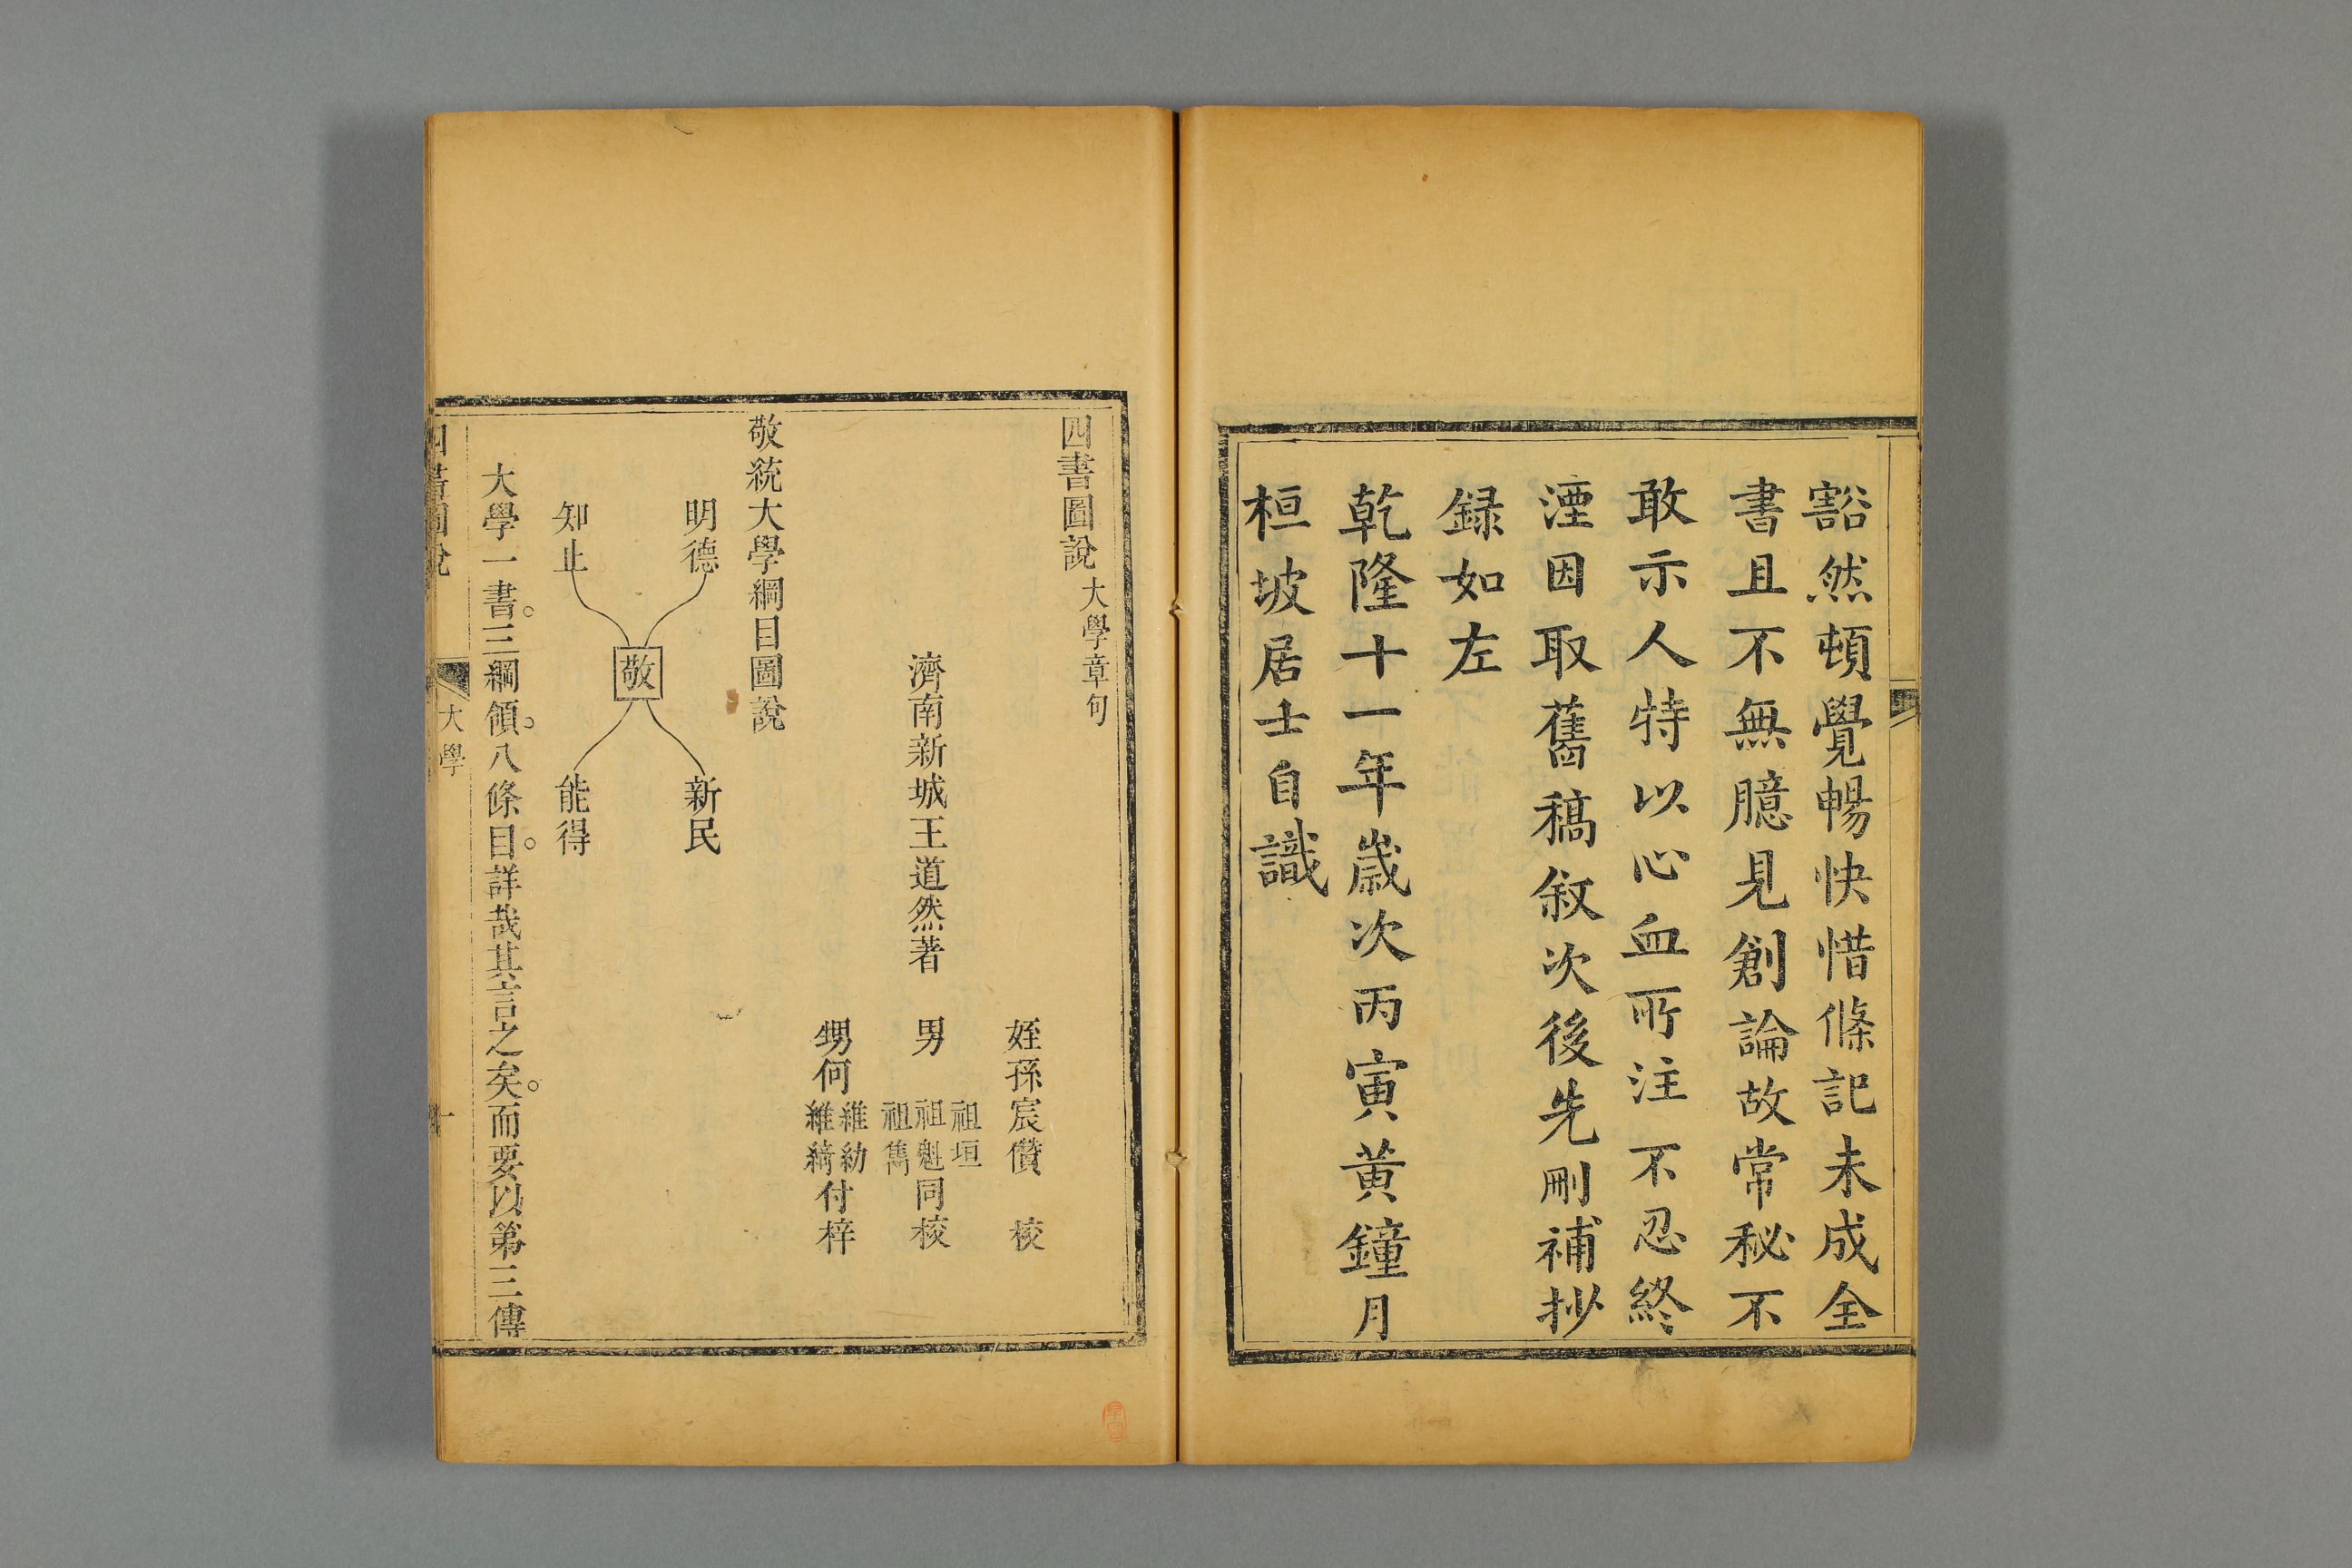 豁然頓覺暢快惜條記未成全
書且不無臆見創論故常秘不
敢示人特以心血所注不忍終
湮因取舊稿敘次後先刪補抄
録如左
乾隆十一年歲次丙寅黃鐘月
桓坡居士自識
四書圖說大學章句
姪孫宸儧 校
濟南新城王道然著 男 祖垣 祖魁 祖雋 同校
甥何 維紉 維綺 付梓
敬統大學綱目圖說
明德
新民
敬
知止
能得
大學一書。三綱領。八條目。詳哉其言之矣。而要以第三傳
四書圖說 大學 一